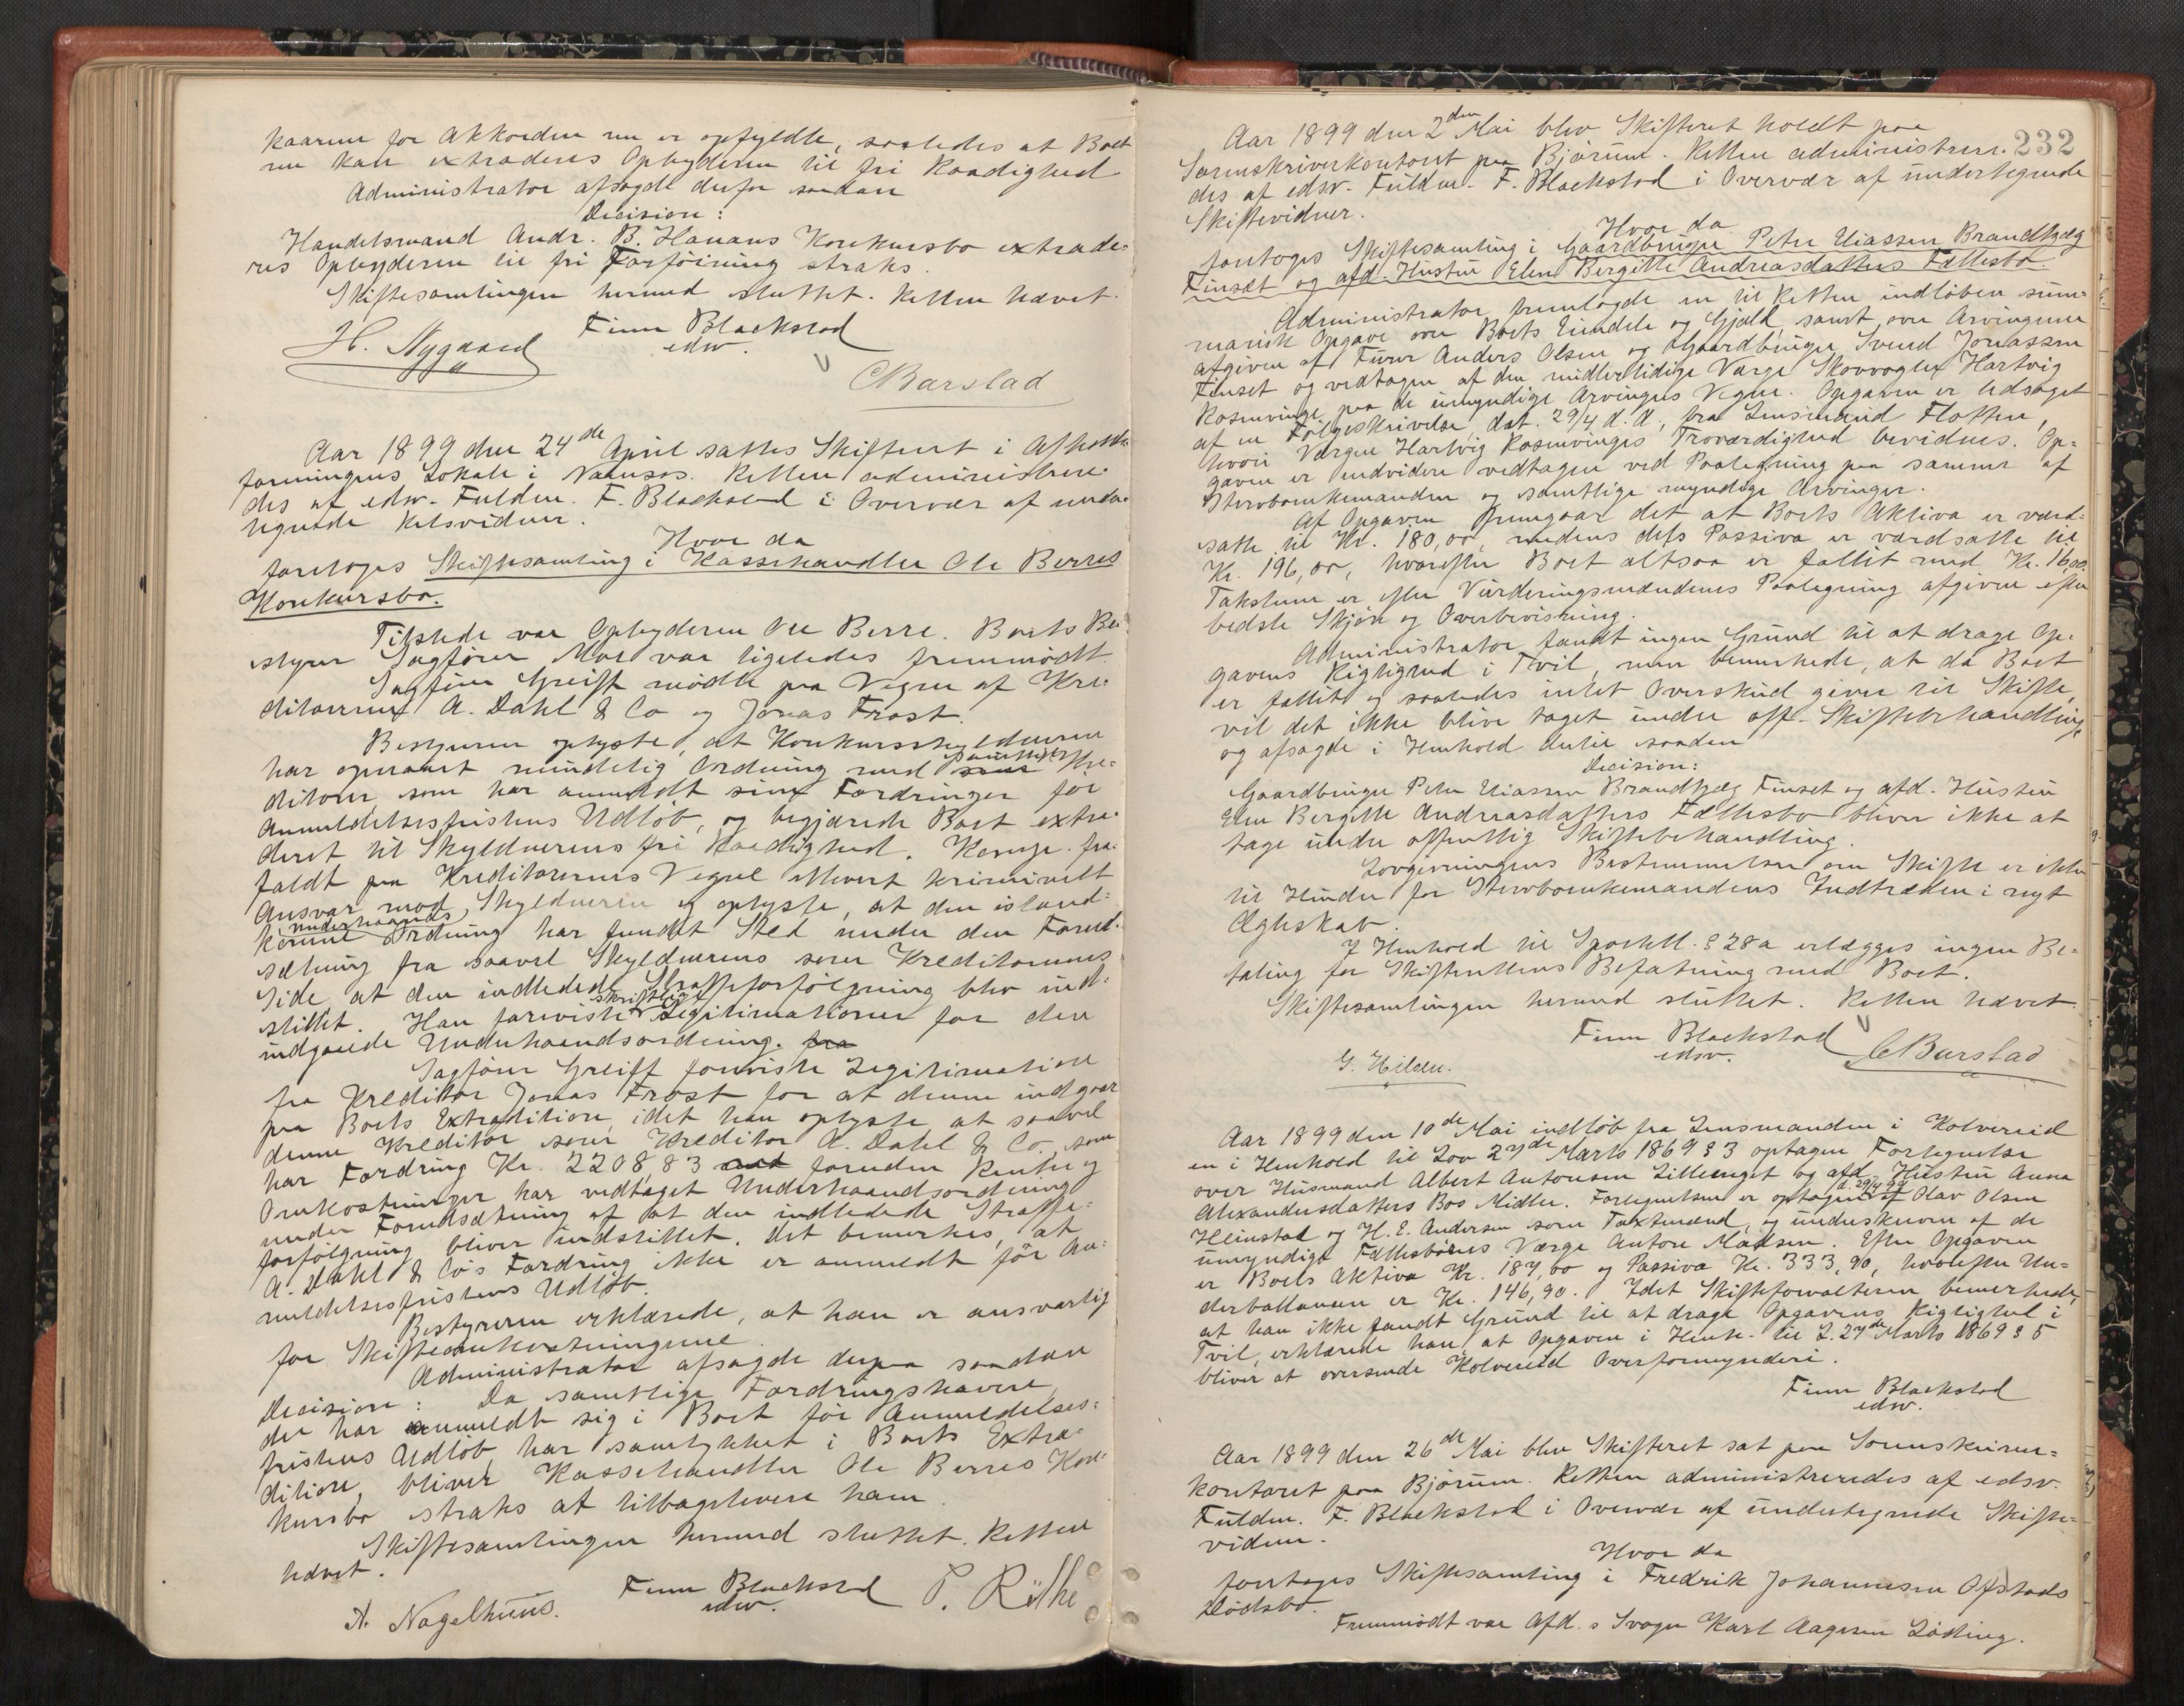 kaarene for Akkorden nu er opfyldte, saaledes at Boet
nu kan extraderes Opbyderen til fri Raadighed
Administrator afsagde derfor saadan
Decision:
Handelsmand Andr. B. Havans Konkursbo extrade-
res Opbyderen til fri Forföining straks.
Skiftesamlingen hermed sluttet. Retten hævet.
H. Nygaard Finn Blackstad
edsv.
C Barstad
Aar 1899 den 24de April sattes Skifteret i Afholds-
foreningens Lokale i Namsos. Retten administrere-
des af edsv. Fuldm. F. Blackstad i Overvær af under-
tegnede Retsvidner.
Hvor da
foretoges Skiftesamling i Kassehandler Ole Berres
Konkursbo.
Tilstede var Opbyderen Ole Berre. Boets Be-
styrer Sagförer Moe var ligeledes fremmödt.
Sagförer Greiff mödte paa Vegne af Kre-
ditorerne A. Dahl & Co og Jonas Frost.
Bestyreren oplyste, at Konkursskyldneren
har opnaaet mindelig Ordning med samtlige Kre-
ditorer, som har anmeldt sine Fordringer för
Anmeldelsesfristens Udlöb, og begjærede Boet extra-
deret til Skyldnerens fri Raadighed. Komp. fra-
faldt paa Kreditorernes Vegne ethvert kriminelt
Ansvar mod Skyldneren og oplyste, at den istand-
komne underhaands Ordning har fundet Sted under den Forud-
sætning fra saavel Skyldnerens som Kreditorernes
Side, at den indledede Strafforfölgning blev ind-
stillet. Han foreviste skriftlige Legitimationer for den
indgaaede Underhaandsordning. fra
Sagförer Greiff foreviste Legitimation
fra Kreditor Jonas Frost for at denne indgaar
paa Boets Extradition, idet han oplyste at saavel
denne Kreditor som Kreditor A. Dahl & Co., som
har Fordring Kr. 2208,83 foruden Renter og
Omkostninger har vedtaget Underhaandsordning
under Forudsætning af at den indledede Straffe-
forfölgning bliver indstillet. Det bemerkes, at
A. Dahl & Co's Fordring ikke er anmeldt för An-
meldelsesfristens Udlöb.
Bestyreren erklærede, at han er ansvarlig
for Skifteomkostningerne.
Administrator afsagde derpaa saadan
Decision: Da samtlige Fordringshavere
der har anmeldt sig i Boet för Anmeldelses-
fristens Udlöb, har samtykket i Boets Extra-
dition, bliver Kassehandler Ole Berres Kon-
kursbo straks at tilbagelevere ham.
Skiftesamlingen hermed sluttet. Retten
hævet.
A. Nagelhuus. Finn Blackstad P. Röthe
edsv.
232
Aar 1899 den 2den Mai blev Skifteret holdt paa
Sorenskriverkontoret paa Bjørum. Retten administrere-
des af edsv. Fuldm. F. Blackstad i Overvær af undertegnede
Skiftevidner.
Hvor da
foretoges Skiftesamling i Gaardbruger Peter Eliassen Brandtzæg
Finsæt og afd. Hustru Elen Bergitte Andreasdatters Fællesbo.
Administrator fremlagde en til Retten indlöben sum-
marisk Opgave over Boets Eiendele og Gjæld, samt over Arvingerne
afgiven af Furer Anders Olsen og Gaardbruger Svend Jonassen
Finset og vedtagen af den midlertidige Værge Skovvogter Hartvig
Rosenvinge paa de umyndige Arvingers Vegne. Opgaven er ledsaget
af en Fölgeskrivelse, dat. 29/4 d. A., fra Lensmand Flotten,
hvori Værgen Hartvig Rosenvinges Troværdighed bevidnes. Op-
gaven er endvidere vedtagen ved Paategning paa samme af
Stervboenkemanden og samtlige myndige Arvinger.
Af Opgaven fremgaar det at Boets Aktiva er værd-
satte til Kr. 180,00, medens dets Passiva er værdsatte til
Kr. 196,00, hvorefter Boet altsaa er fallit med Kr. 16,00.
Taksterne er efter Vurderingsmændenes Paategning afgiven efter
bedste Skjön og Overbevisning.
Administrator fandt ingen Grund til at drage Op-
gavens Rigtighed i Tvil, men bemerkede, at da Boet
er fallit og saaledes intet Overskud giver til Skifte,
vil det ikke blive taget under off. Skiftebehandling,
og afsagde i Henhold dertil saadan
Decision:
Gaardbruger Peter Eliassen Brandtzæg Finset og afd. Hustru
Elen Bergitte Andreasdatters Fællesbo bliver ikke at
tage under offentlig Skiftebehandling.
Lovgivningens Bestemmelser om Skifte er ikke
til Hinder for Stervboenkemandens Indtræden i nyt
Ægteskab.
I Henhold til Sportell. § 28a erlægges ingen Be-
taling for Skifterettens Befatning med Boet.
Skiftesamlingen hermed sluttet. Retten hævet.
Finn Blackstad
edsv.
G. Hilden. C Barstad
Aar 1899 den 10de Mai indløb fra Lensmanden i Kolvereid
en i Henhold til Lov 27de Marts 1869 § 3 optagen Fortegnelse
over Husmand Albert Antonsen Lillenget og afd. Hustru Anna
Alexandersdatters Bos Midler. Fortegnelsen er optagen d. 29/4 99 af Olav Olsen
Heimstad og H. E. Andersen som Taxtmænd, og underskreven af de
umyndige Fællesbörns Værge Antone Madsen. Efter Opgaven
er Boets Aktiva Kr. 187,00 og Passiva Kr. 333,90, hvorefter Un-
derballancen er Kr. 146,90. Idet Skifteforvalteren bemerkede,
at han ikke fandt Grund til at drage Opgavens Rigtighed i
Tvil, erklærede han, at Opgaven i Henh. til L. 27de Marts 1869 § 5
bliver at oversende Kolvereid Overformynderi.
Finn Blackstad
edsv.
Aar 1899 den 26de Mai blev Skifteret sat paa Sorenskriver-
kontoret paa Bjørum. Retten administreredes af edsv.
Fuldm. F. Blackstad i Overvær af undertegnede Skifte-
vidner.
Hvor da
foretoges Skiftesamling i Fredrik Johannesen Ofstads
Dödsbo.
Fremmödt var Afd.s Svoger Karl Aagesen Löding.